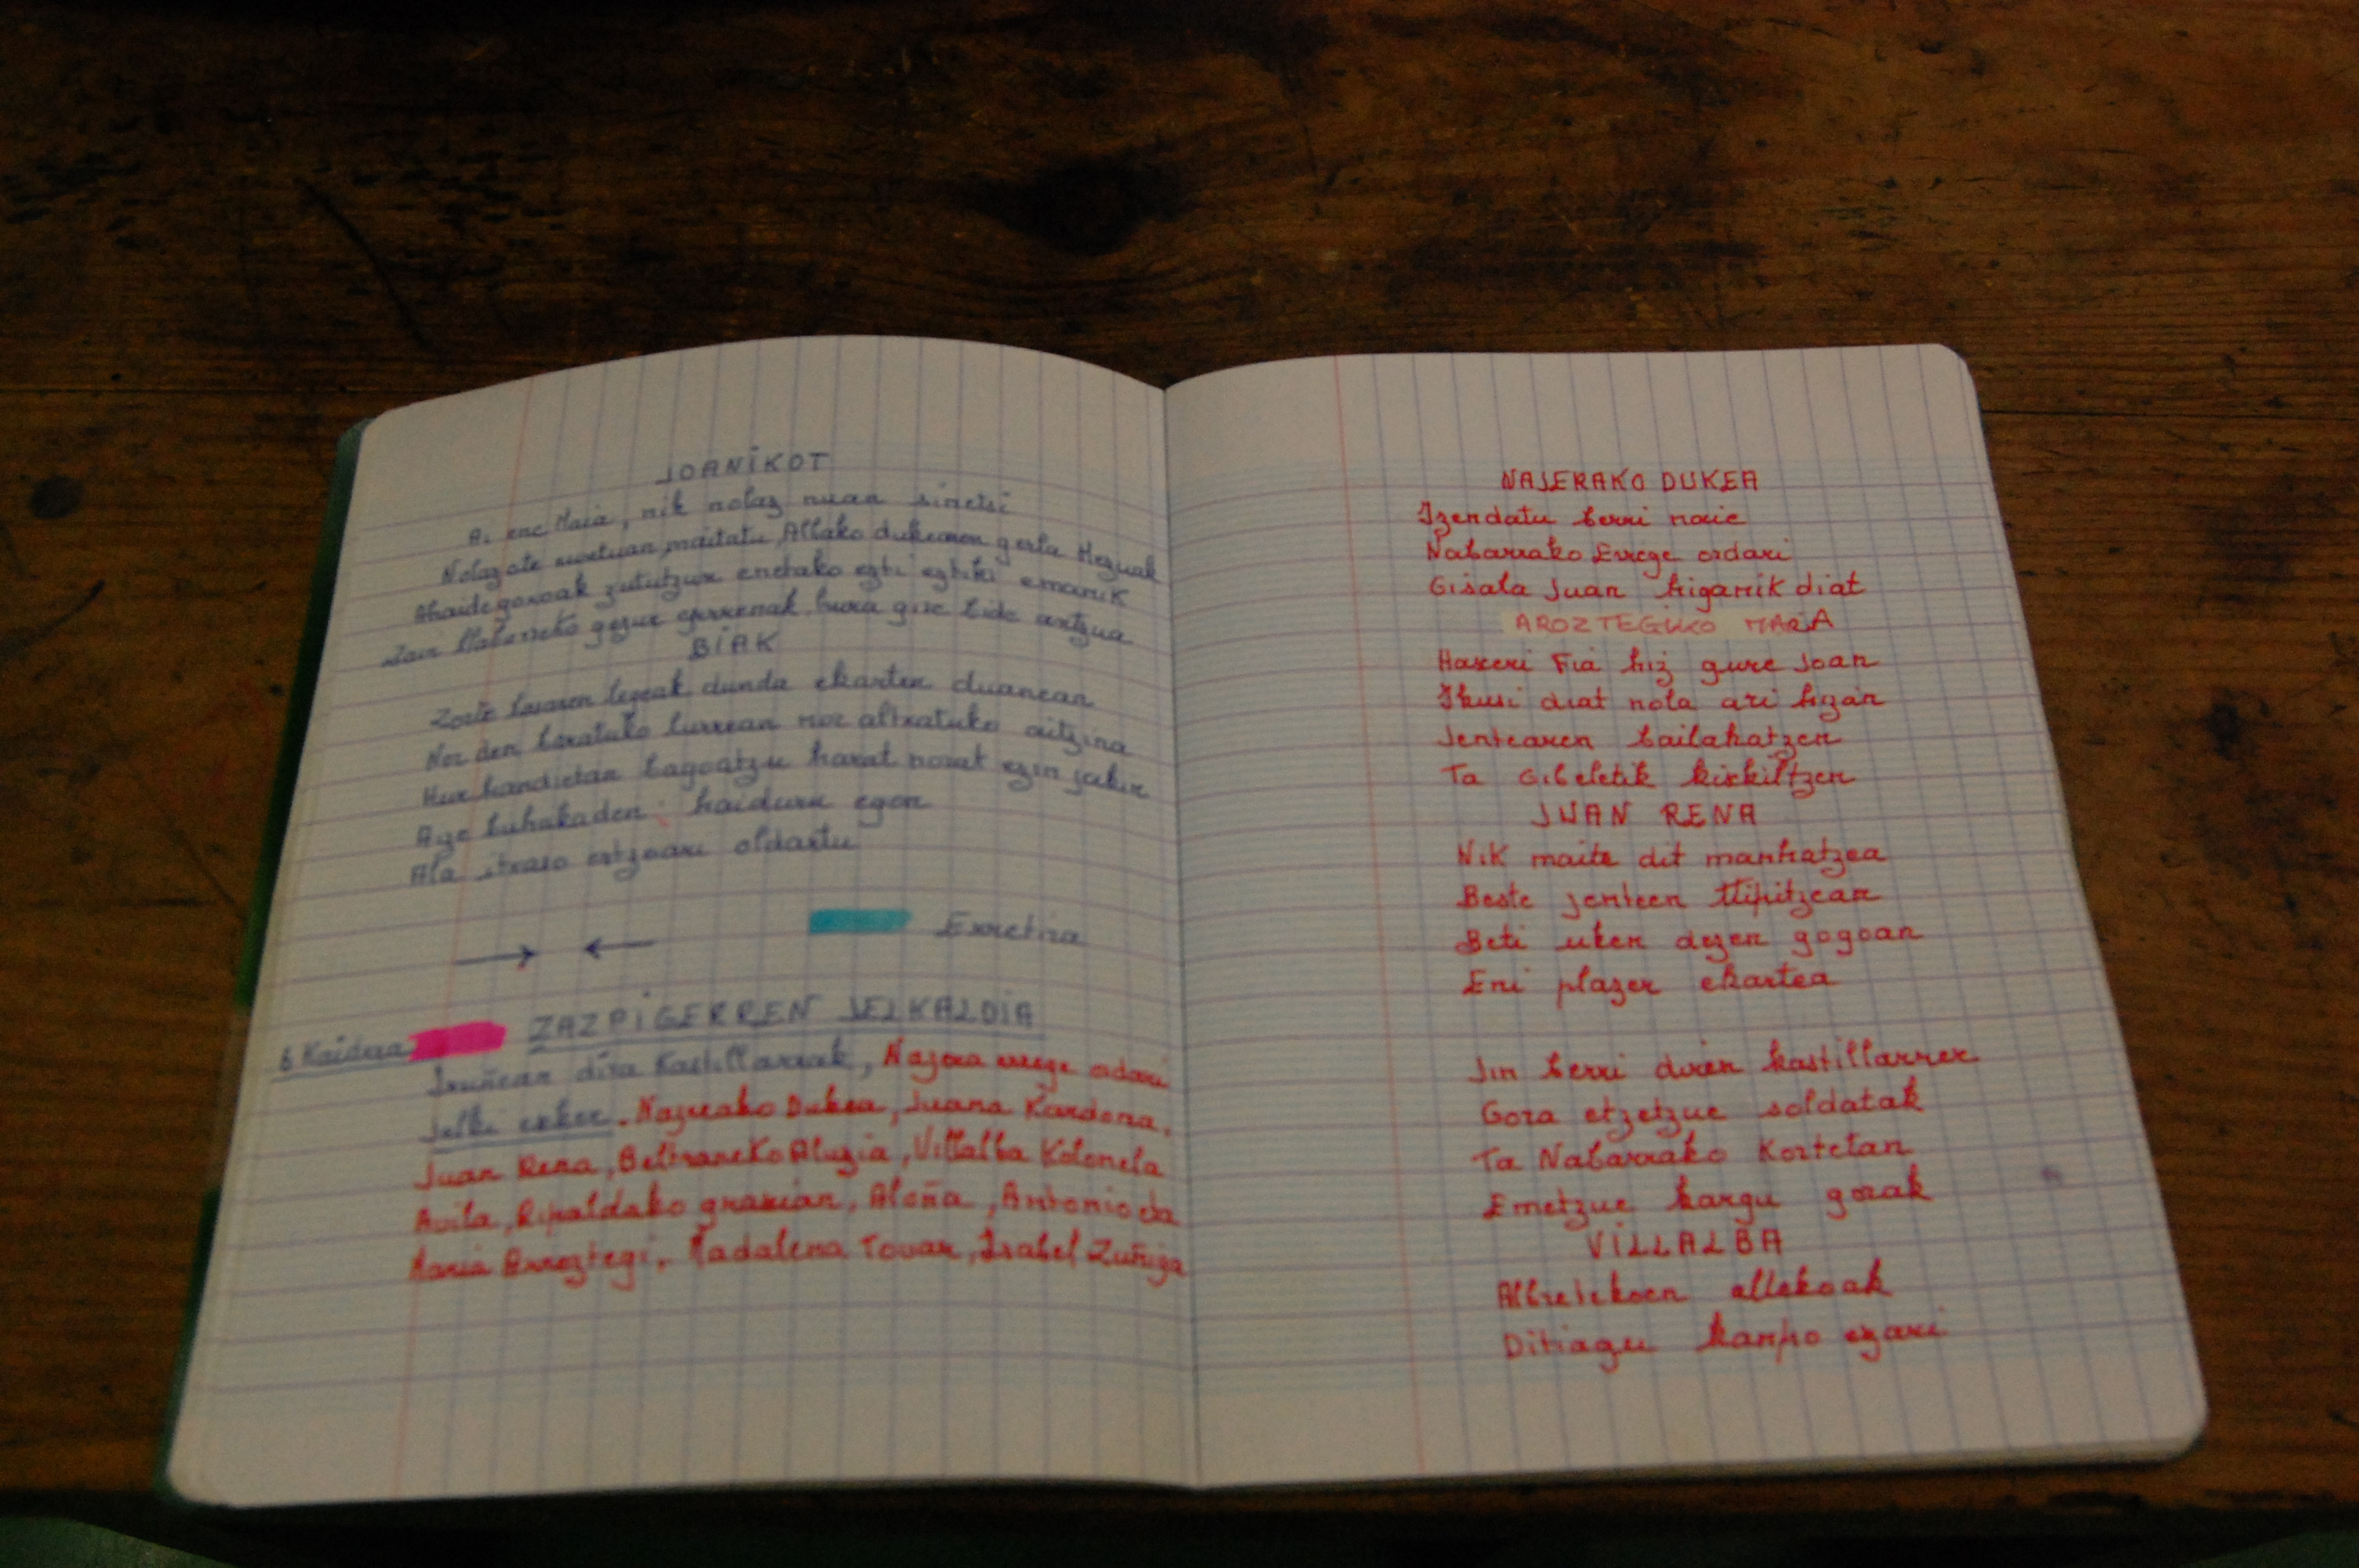 JOANIKOT
Ai ene Maia, nik nolaz nuan sinetsi
Nolaz ote maitatu, Albako dukearen gerla
Ahaide goxoak enetako ezti eztiki emanik
gezur gure bide
BIAK
Zorte legeak dunda ekarten duanean
Nor den loratuko lurrean nor altxatuko aitzina
Hur handietan bagoatzu harat norat ezin jakin
haiduru egon
Ala itxaso ertzoari oldartu
→ ← Erretira
6 Kaidera ZAZPIGERREN JELKALDIA
Iruñean dira Kastillarrak, Najera errege ordari
jelki exker. Najerako Dukea, Juana Kardona,
Juan Rena, Beltraneko Aluzia, Villalba Kolonela
Avila, Ripaldako graxian, Aloña, Antonio eta
Maria Arroztegi, Madalena Tovar, Isabel Zuñiga
NAJERAKO DUKEA
Izendatu berri naie
Nabarrako Errege ordari
Gisala Juan higanik diat
AROZTEGUKO MARIA
Haxeri Fia hiz gure Joan
Ikusi diat nola ari hizan
Jentearen bailakatzen
Ta Gibeletik kixkiltzen
JUAN RENA
Nik maite dit manhatzea
Beste jenteen ttipitzean
Beti uken dezen gogoan
Eni plazer ekartea
Jin berri diren kastillarrer
Gora etzetzue soldatak
Ta Nabarrako Kortetan
Emetzue kargu gorak
VILLALBA
Albretekoen allekoak
Ditiagu kanpo ezari